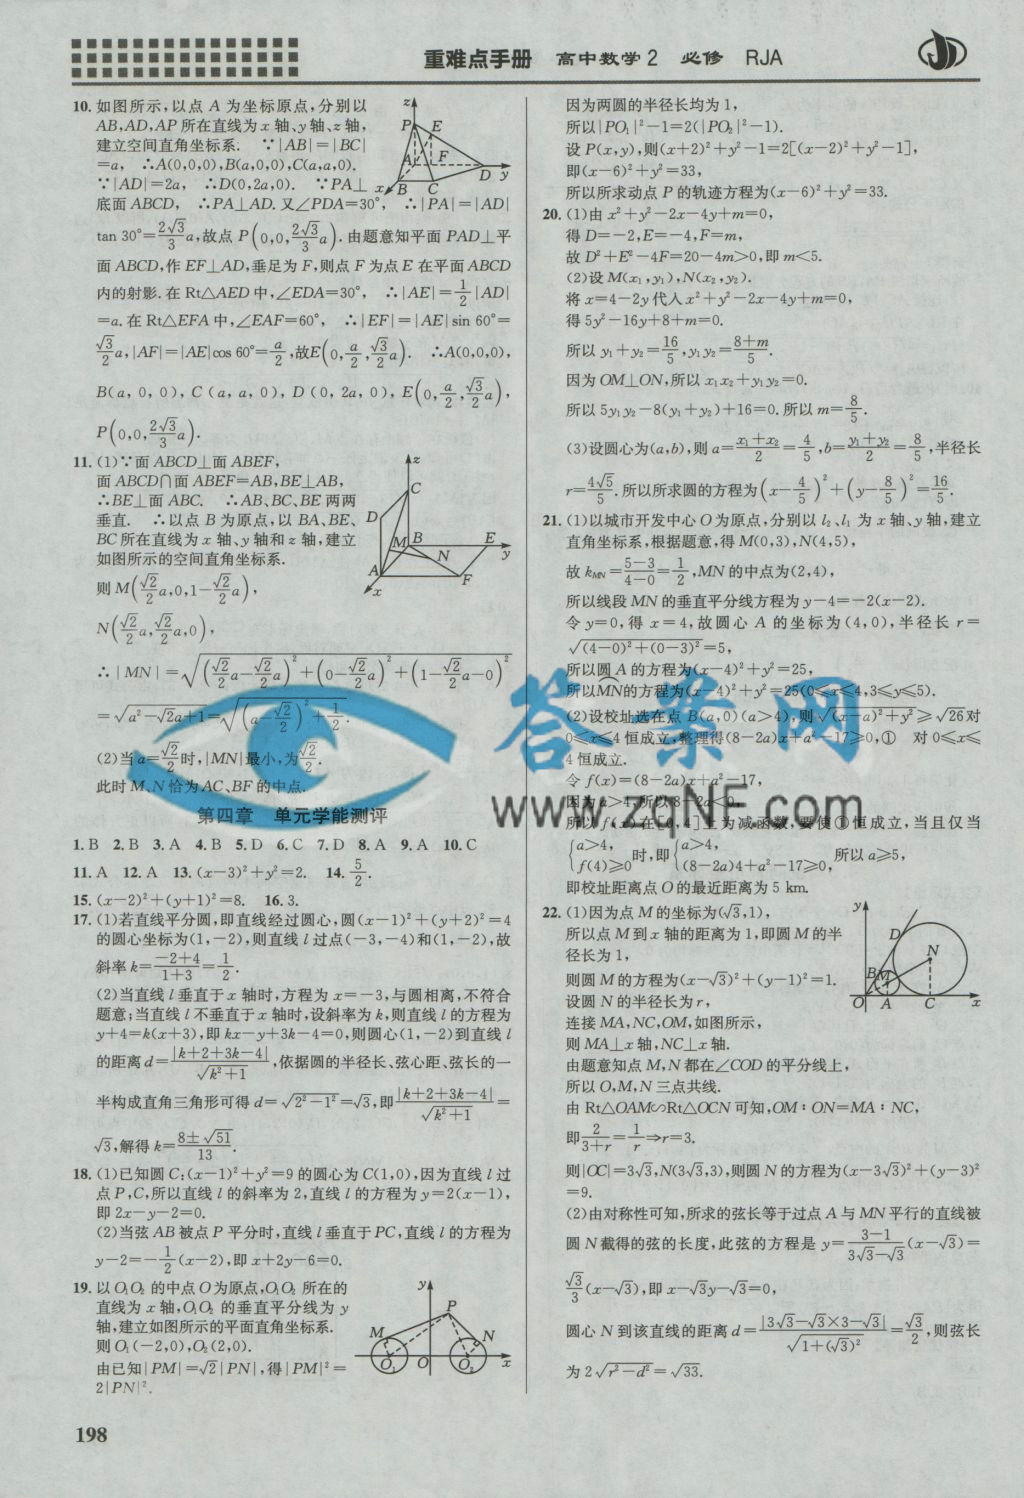 重难点手册 高中数学2 必修 RJA
10. 如图所示,以点 A 为坐标原点,分别以
AB,AD,AP 所在直线为 x 轴、y 轴、z 轴,
建立空间直角坐标系. ∵|AB|=|BC|
=a, ∴A(0,0,0),B(a,0,0),C(a,a,0).
∵|AD|=2a, ∴D(0,2a,0). ∵PA⊥
底面 ABCD, ∴PA⊥AD.又∠PDA=30°, ∴|PA|=|AD|
tan 30°=2√3/3 a,故点 P(0,0,2√3/3 a).由题意知平面 PAD⊥平
面 ABCD,作 EF⊥AD,垂足为 F,则点 F 为点 E 在平面 ABCD
内的射影.在 Rt△AED 中,∠EDA=30°, ∴|AE|=1/2|AD|
=a.在 Rt△EFA 中,∠EAF=60°, ∴|EF|=|AE|sin 60°=
√3/2 a,|AF|=|AE|cos 60°=a/2,故E(0,a/2,√3/2 a). ∴A(0,0,0),
B(a,0,0),C(a,a,0),D(0,2a,0),E(0,a/2,√3/2 a),
P(0,0,2√3/3 a).
z P E A F D y x B C
11. (1)∵面 ABCD⊥面 ABEF,
面 ABCD∩面 ABEF=AB,BE⊥AB,
∴BE⊥面 ABC. ∴AB、BC、BE 两两
垂直. ∴以点 B 为原点,以 BA、BE、
BC 所在直线为 x 轴、y 轴和 z 轴,建立
如图所示的空间直角坐标系.
则 M(√2/2 a,0,1-√2/2 a),
N(√2/2 a,√2/2 a,0),
∴|MN|=√((√2/2 a-√2/2 a)²+(0-√2/2 a)²+(1-√2/2 a-0)²)
=√(a²-√2a+1)=√((a-√2/2)²+1/2).
(2)当 a=√2/2时,|MN|最小,为√2/2.
此时 M、N 恰为 AC、BF 的中点.
z C D M B E y N A F x
第四章 单元学能测评
1. B 2. B 3. A 4. B 5. D 6. C 7. D 8. A 9. A 10. C
11. A 12. A 13. (x-3)²+y²=2. 14. 5/2.
15. (x-2)²+(y+1)²=8. 16. 3.
17. (1)若直线平分圆,即直线经过圆心,圆(x-1)²+(y+2)²=4
的圆心坐标为(1,-2),则直线 l 过点(-3,-4)和(1,-2),故
斜率 k=(-2+4)/(1+3)=1/2.
(2)当直线 l 垂直于 x 轴时,方程为 x=-3,与圆相离,不符合
题意;当直线 l 不垂直于 x 轴时,设斜率为 k,则直线 l 的方程为
y+4=k(x+3),即 kx-y+3k-4=0,则圆心(1,-2)到直线 l
的距离 d=|k+2+3k-4|/√(k²+1),依据圆的半径长、弦心距、弦长的一
半构成直角三角形可得 d=√(2²-1²)=√3,即|k+2+3k-4|/√(k²+1)=
√3,解得 k=(8±√51)/13.
18. (1)已知圆 C:(x-1)²+y²=9 的圆心为 C(1,0),因为直线 l 过
点 P,C,所以直线 l 的斜率为 2,直线 l 的方程为 y=2(x-1),
即 2x-y-2=0.
(2)当弦 AB 被点 P 平分时,直线 l 垂直于 PC,直线 l 的方程为
y-2=-1/2(x-2),即 x+2y-6=0.
19. 以 O₁O₂ 的中点 O 为原点,O₁O₂ 所在的
直线为 x 轴,O₁O₂ 的垂直平分线为 y
轴,建立如图所示的平面直角坐标系.
则 O₁(-2,0),O₂(2,0).
由已知|PM|=√2|PN|,得|PM|²=
2|PN|².
y P M N O₁ O O₂ x
因为两圆的半径长均为 1,
所以|PO₁|²-1=2(|PO₂|²-1).
设 P(x,y),则(x+2)²+y²-1=2[(x-2)²+y²-1],
即(x-6)²+y²=33,
所以所求动点 P 的轨迹方程为(x-6)²+y²=33.
20. (1)由 x²+y²-2x-4y+m=0,
得 D=-2,E=-4,F=m,
故 D²+E²-4F=20-4m>0,即 m<5.
(2)设 M(x₁,y₁),N(x₂,y₂).
将 x=4-2y代入 x²+y²-2x-4y+m=0,
得 5y²-16y+8+m=0.
所以 y₁+y₂=16/5,y₁y₂=(8+m)/5.
因为 OM⊥ON,所以 x₁x₂+y₁y₂=0.
所以 5y₁y₂-8(y₁+y₂)+16=0.所以 m=8/5.
(3)设圆心为(a,b),则 a=(x₁+x₂)/2=4/5,b=(y₁+y₂)/2=8/5,半径长
r=4√5/5.所以所求圆的方程为(x-4/5)²+(y-8/5)²=16/5.
21. (1)以城市开发中心 O 为原点,分别以 l₂、l₁ 为 x 轴、y 轴,建立
直角坐标系,根据题意,得 M(0,3),N(4,5),
故 kMN=(5-3)/(4-0)=1/2,MN 的中点为(2,4),
所以线段 MN 的垂直平分线方程为 y-4=-2(x-2).
令 y=0,得 x=4,故圆心 A 的坐标为(4,0),半径长 r=
√((4-0)²+(0-3)²)=5,
所以圆 A 的方程为(x-4)²+y²=25,
所以MN的方程为(x-4)²+y²=25(0≤x≤4,3≤y≤5).
(2)设校址选在点 B(a,0)(a>4),则√((x-a)²+y²)≥√26对
0≤x≤4 恒成立,整理得(8-2a)x+a²-17≥0,① 对 0≤x≤
4 恒成立.
令 f(x)=(8-2a)x+a²-17,
因为 a>4,所以 8-2a<0,
所以 f(x)在[0,4]上为减函数,要使①恒成立,当且仅当
{a>4, f(4)≥0 时,即{a>4, (8-2a)4+a²-17≥0, 所以 a≥5,
即校址距离点 O 的最近距离为 5 km.
22. (1)因为点 M 的坐标为(√3,1),
所以点 M 到 x 轴的距离为 1,即圆 M 的半
径长为 1,
则圆 M 的方程为(x-√3)²+(y-1)²=1.
设圆 N 的半径长为 r,
连接 MA,NC,OM,如图所示,
则 MA⊥x 轴,NC⊥x 轴.
由题意知点 M,N 都在∠COD 的平分线上,
所以 O,M,N 三点共线.
由 Rt△OAM∽Rt△OCN 可知,OM∶ON=MA∶NC,
即2/(3+r)=1/r⇒r=3.
则|OC|=3√3,N(3√3,3),则圆 N 的方程为(x-3√3)²+(y-3)²
=9.
(2)由对称性可知,所求的弦长等于过点 A 与 MN 平行的直线被
圆 N 截得的弦的长度,此弦的方程是 y=(3-1)/(3√3-√3)(x-√3)=
√3/3(x-√3),即 x-√3y-√3=0,
圆心 N 到该直线的距离 d=|3√3-√3×3-√3|/√(1+(√3)²)=√3/2,则弦长
为 2√(r²-d²)=√33.
y D N B M O A C x
答案网
www.zqnf.com
198